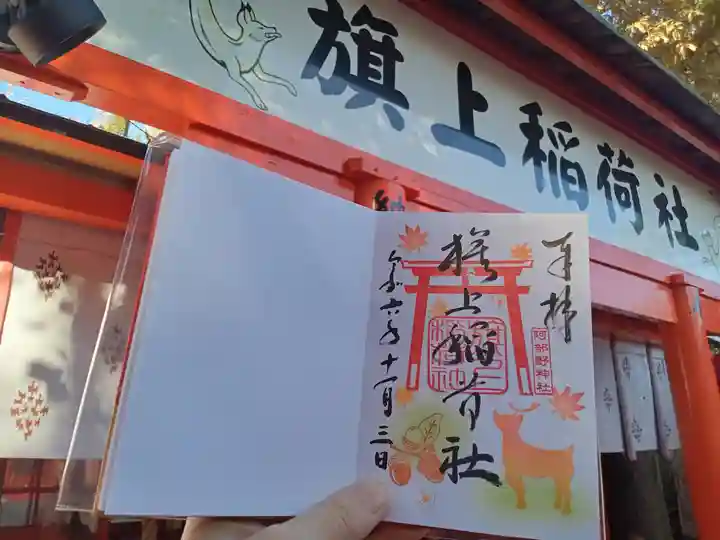 旗上稲荷社
奉拝
旗上稲荷社
阿部野神社
令和六年十一月三日